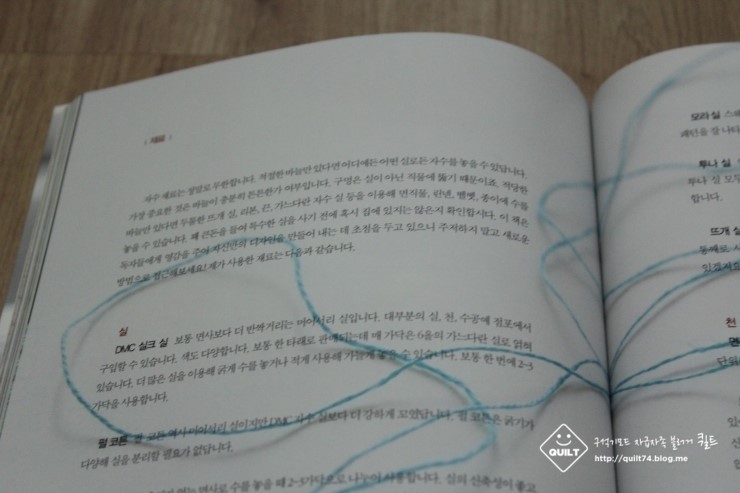 | 재료 |
자수 재료는 정말로 무한합니다. 적절한 바늘만 있다면 어디에든 어떤 실로든 자수를 놓을 수 있답니다.
가장 중요한 것은 바늘이 충분히 튼튼한가 여부입니다. 구멍은 실이 아닌 직물에 뚫기 때문이죠. 적당한
바늘만 있다면 두툼한 뜨개 실, 리본, 끈, 가느다란 자수 실 등을 이용해 면직물, 린넨, 벨벳, 종이에 수를
놓을 수 있습니다. 꽤 큰돈을 들여 특수한 실을 사기 전에 혹시 집에 있지는 않은지 확인합시다. 이 책은
독자들에게 영감을 주어 자신만의 디자인을 만들어 내는 데 초점을 두고 있으니 주저하지 말고 새로운
방법으로 접근해보세요! 제가 사용한 재료는 다음과 같습니다.
실
DMC 실크 실 보통 면사보다 더 반짝거리는 머어서리 실입니다. 대부분의 실, 천, 수공예 점포에서
구입할 수 있습니다. 색도 다양합니다. 보통 한 타래로 판매되는데 매 가닥은 6올의 가느다란 실로 얽혀
있습니다. 더 많은 실을 이용해 굵게 수를 놓거나 적게 사용해 가늘게 놓을 수 있습니다. 보통 한 번에 2~3
가닥을 사용합니다.
펄 코튼 펄 코튼 역시 머어서리 실이지만 DMC 자수 실보다 더 강하게 꼬였답니다. 펄 코튼은 굵기가
다양해 실을 분리할 필요가 없답니다.
면사로 수를 놓을 때 2~3가닥으로 나누어 사용합니다. 실의 신축성이 좋고
모라 실
패턴을 잘 나타
투나 실
나 실 모두
합니다.
뜨개 실
통째로 사
있겠지요
천
면
QUILT
구석기모드 자급자족 블로거 퀼트
http://quilt74.blog.me